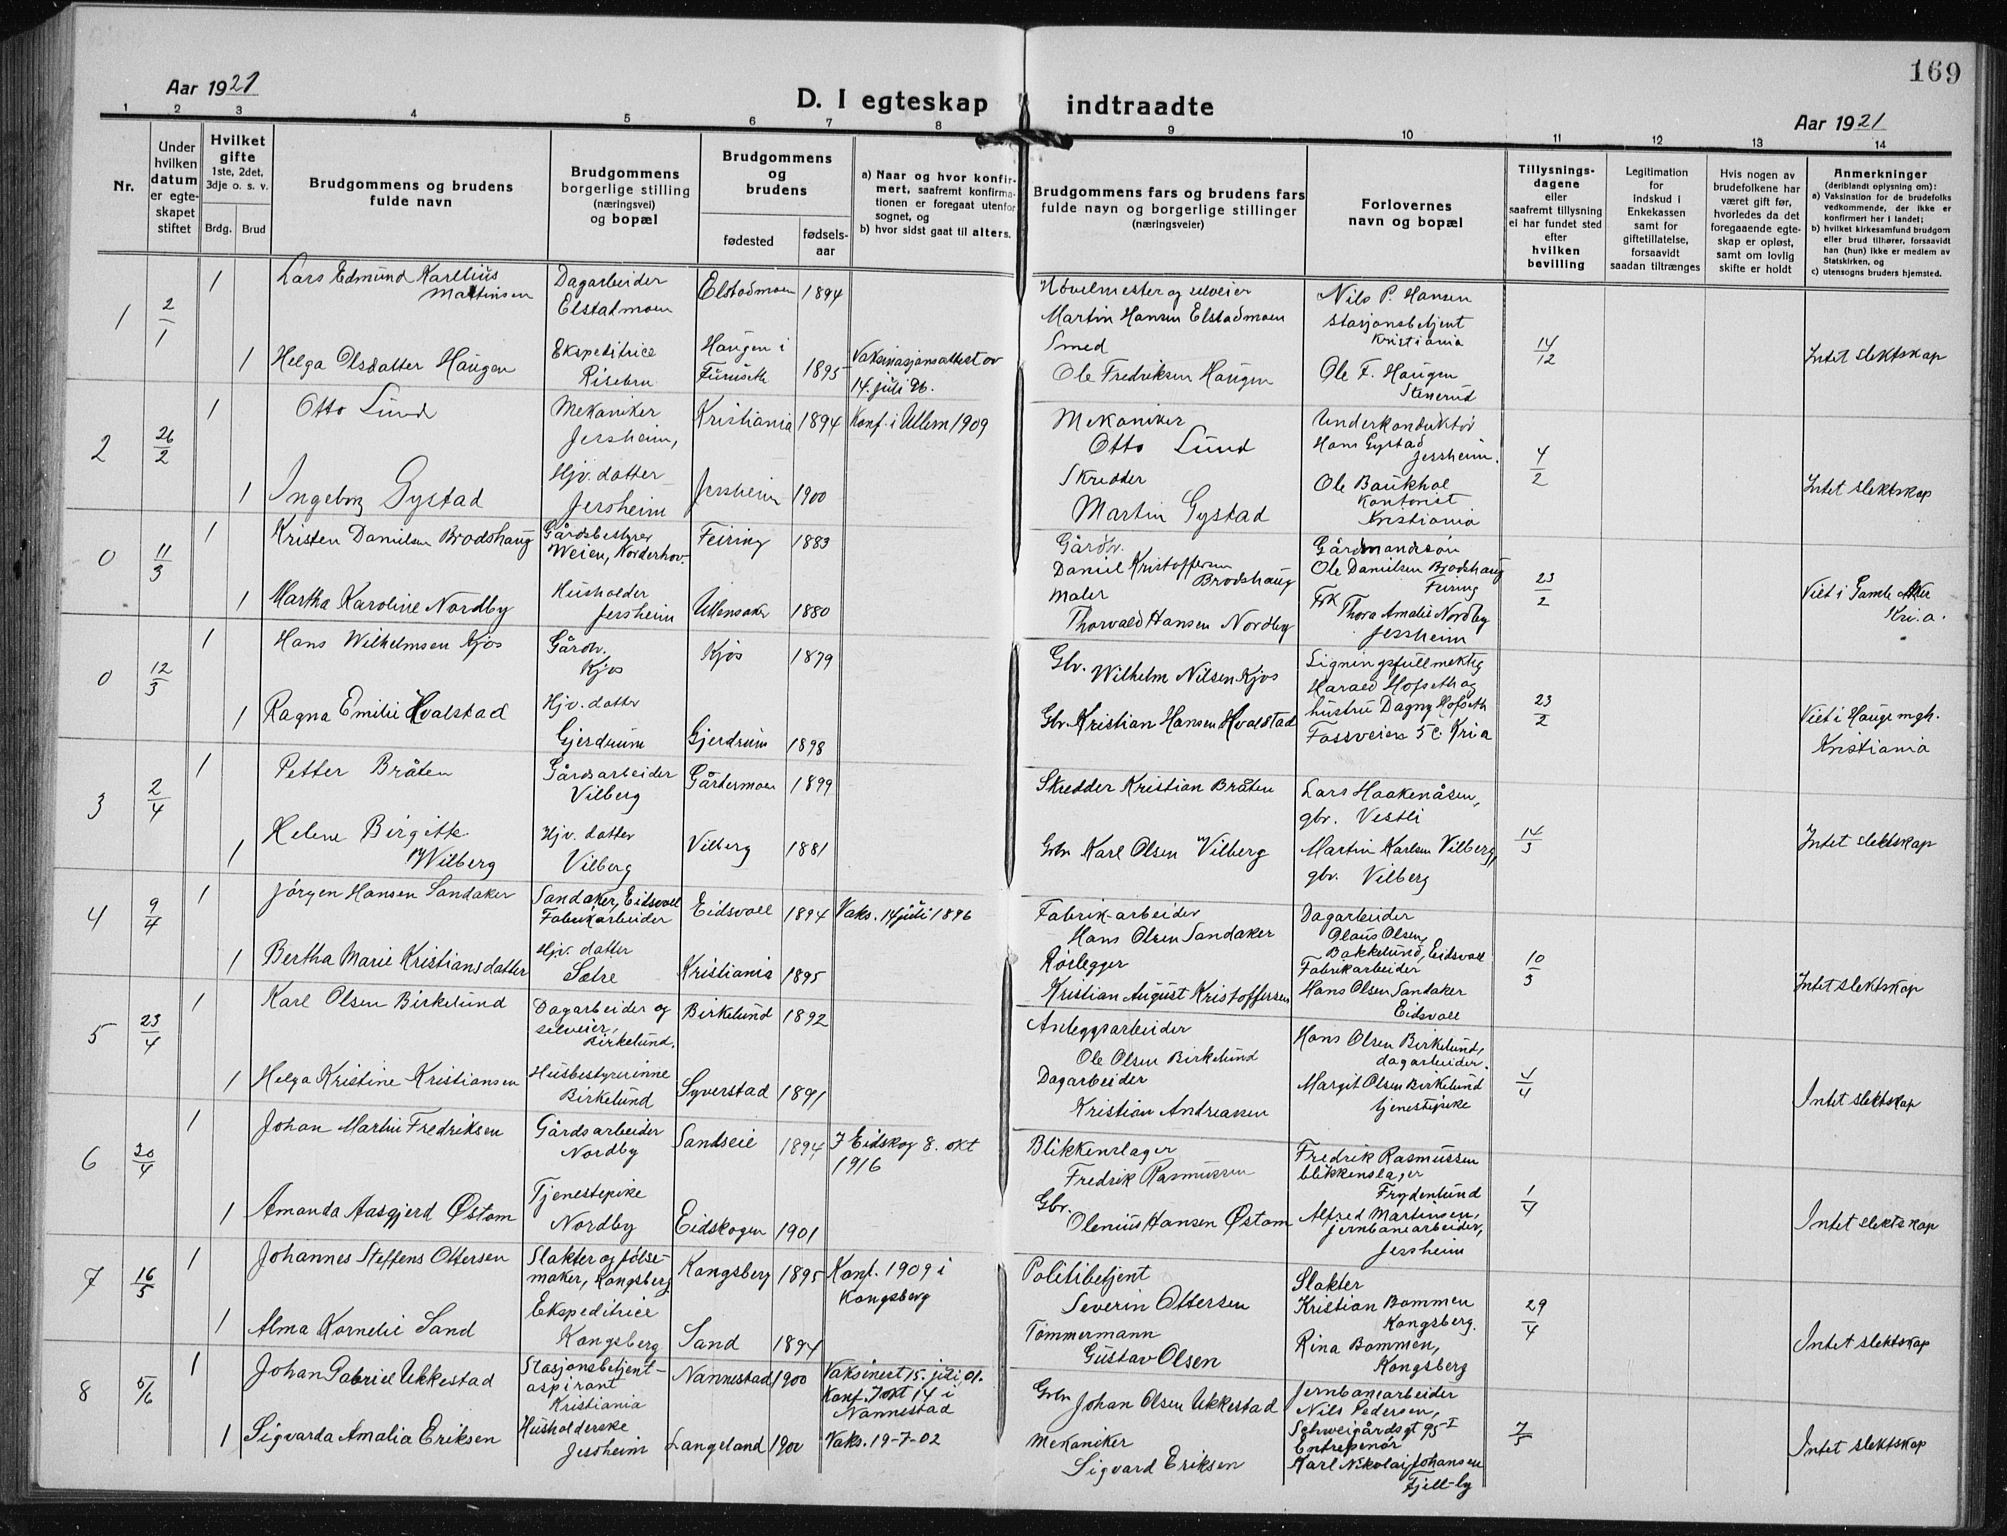 169
Aar 1921
D. I egteskap indtraadte
Aar 1921
1 2 3 4 5 6 7 8 9 10 11 12 13 14
Nr.
Under hvilken datum er egteskapet stiftet
Hvilket gifte 1ste, 2det, 3dje o. s. v.
Brdg. Brud
Brudgommens og brudens fulde navn
Brudgommens borgerlige stilling (næringsvei) og bopæl
Brudgommens og brudens
fødested
fødselsaar
a) Naar og hvor konfirmert, saafremt konfirmationen er foregaat utenfor sognet, og
b) hvor sidst gaat til alters.
Brudgommens fars og brudens fars fulde navn og borgerlige stillinger (næringsveier)
Forlovernes navn og bopæl
Tillysningsdagene eller saafremt tillysning ei har fundet sted efter hvilken bevilling
Legitimation for indskud i Enkekassen samt for giftetillatelse, forsaavidt saadan tiltrænges
Hvis nogen av brudefolkene har været gift før, hvorledes da det foregaaende egteskap er opløst, samt om lovlig skifte er holdt
Anmerkninger (deriblandt oplysning om):
a) Vaksination for de brudefolks vedkommende, der ikke er konfirmert her i landet;
b) hvilket kirkesamfund brudgom eller brud tilhører, forsaavidt han (hun) ikke er medlem av Statskirken, og
c) utensogns bruders hjemsted.
1 2/1 1 Lars Edmund Karelius Martinsen
Dagarbeider Elstadmoen
Elstadmoen 1894
Høvelmester og selveier
Martin Hansen Elstadmoen
Nils P. Hansen
stasjonsbetjent
Kristiania
1 Helga Olsdatter Haugen
Ekspeditrice Risebru
Haugen i Furuseth 1895
Vaksinasjonsattest av 14. juli 96.
Smed
Ole Fredriksen Haugen
Ole F. Haugen
Stenerud
14/12
Intet slektskap
2 26/2 1 Otto Lund
Mekaniker Jessheim,
Kristiania 1894
Konf. i Ullern 1909
Mekaniker
Otto Lund
Underkonduktør
Hans Gystad
Jessheim.
1 Ingeborg Gystad
Hjv. datter Jessheim
Jessheim 1900
Skredder
Martin Gystad
Ole Baukhol
Kontorist
Kristiania
4/2
Intet slektskap
0 11/3 1 Kristen Danielsen Brodshaug
Gårdsbestyrer Weien, Norderhov.
Feiring 1883
Gårdbr.
Daniel Kristoffersen Brodshaug
Gårdmandssøn
Ole Danielsen Brodshaug
Feiring
1 Martha Karoline Nordby
Husholder Jessheim
Ullensaker 1880
Maler
Thorvald Hansen Nordby
Frk
Thora Amalie Nordby
Jessheim
23/2
Viet i Gamle Aker
Kri.a.
0 12/3 1 Hans Wilhelmsen Kjos
Gårdbr. Kjos
Kjos 1879
Gbr. Wilhelm Nilsen Kjos
Ligningsfullmektig
Harald Hofseth og
hustru Dagny Hofseth
Fossveien 5 C. Kria
1 Ragna Emilie Hvalstad
Hjv. datter Gjerdrum
Gjerdrum 1898
Gbr. Kristian Hansen Hvalstad
23/2
Viet i Hauge mgh.
Kristiania
3 2/4 1 Petter Bråten
Gårdsarbeider Vilberg
Gårdermoen 1899
Skredder Kristian Bråten
Lars Haakenåsen,
gbr. Vestli
1 Helene Birgitte Wilberg
Hjv. datter Vilberg
Vilberg 1881
Gbr. Karl Olsen Vilberg
Martin Karlsen Vilberg,
gbr. Vilberg
14/3
Intet slektskap
4 9/4 1 Jörgen Hansen Sandaker
Sandaker, Eidsvoll Fabrikarbeider
Eidsvoll 1894
Vaks. 14 juli 1896
Fabrikarbeider
Hans Olsen Sandaker
Dagarbeider
Olaus Olsen,
Bakkelund, Eidsvoll
1 Bertha Marie Kristiansdatter
Hjv. datter Sætre
Kristiania 1895
Rørlegger
Kristian August Kristoffersen
Fabrikarbeider
Hans Olsen Sandaker
Eidsvoll
10/3
Intet slektskap
5 23/4 1 Karl Olsen Birkelund
Dagarbeider og selveier, Birkelund.
Birkelund 1892
Anleggsarbeider
Ole Olsen Birkelund
Hans Olsen Birkelund,
dagarbeider.
1 Helga Kristine Kristiansen
Husbestyrerinne Birkelund
Syverstad 1891
Dagarbeider
Kristian Andreassen
Margit Olsen Birkelund
tjenestepike
Intet slektskap
6 30/4 1 Johan Martin Fredriksen
Gårdsarbeider Nordby
Sandseie 1894
I Eidskog 8. okt 1916
Blikkenslager
Fredrik Rasmussen
Fredrik Rasmussen
blikkenslager
Frydenlund
1 Amanda Aasgjerd Østom
Tjenestepike Nordby
Eidskogen 1901
Gbr.
Olenius Hansen Østom
Alfred Martinsen,
jernbanearbeider,
Jessheim
1/4
Intet slektskap
7 16/5 1 Johannes Steffens Ottersen
Slakter og pølsemaker, Kongsberg
Kongsberg 1895
Konf. 1909 i Kongsberg
Politibetjent
Severin Ottersen
Slakter
Kristian Bommen
Kongsberg.
1 Alma Kornelie Sand
Ekspeditrice Kongsberg
Sand 1894
Tømmermann
Gustav Olsen
Rina Bommen,
Kongsberg
29/4
Intet slektskap
8 5/6 1 Johan Gabriel Ukkestad
Stasjonsbetjent-aspirant Kristiania
Nannestad 1900
Vaksinert 15. juli 01.
Konf. 7 okt 14 i Nannestad
Gbr. Johan Olsen Ukkestad
Jernbanearbeider
Nils Pedersen,
Schweigårdsgt 95 I
1 Sigvarda Amalia Eriksen
Husholderske Jessheim
Langeland 1900
Vaks. 19-7-02
Mekaniker
Sigvard Eriksen
Entreprenør
Karl Nikolai Johansen
Fjell-by
7/5
Intet slektskap